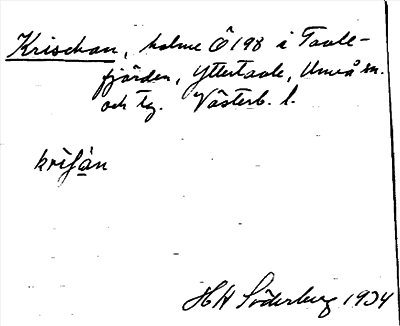 Krischan, holme Ö198 i Tavle-
fjärden, Yttertavle, Umeå sn.
och tg. Västerb. l.
kriʃàn
HH Söderberg 1934